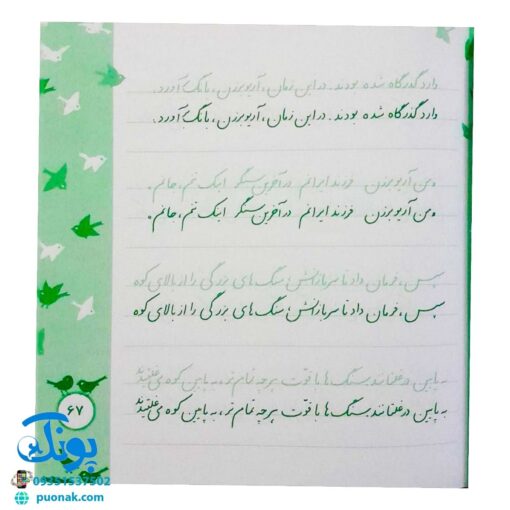 وارد گذرگاه شده بودند. در این زمان، آریوبرزن، بانگ برآورد:
وارد گذرگاه شده بودند. در این زمان، آریوبرزن، بانگ برآورد:
من آریوبرزن فرزند ایرانم در آخرین سنگر اینک تنم، جانم.
من آریوبرزن فرزند ایرانم در آخرین سنگر اینک تنم، جانم.
سپس، فرمان داد تا سربازانش، سنگ های بزرگی را از بالای کوه
سپس، فرمان داد تا سربازانش، سنگ های بزرگی را از بالای کوه
به پایین در غلتانند سنگ ها با قوت هر چه تمام تر، به پایین کوه می غلتیدند
به پایین در غلتانند سنگ ها با قوت هر چه تمام تر، به پایین کوه می غلتیدند
۶۷
پونک
09351537502
puonak.com